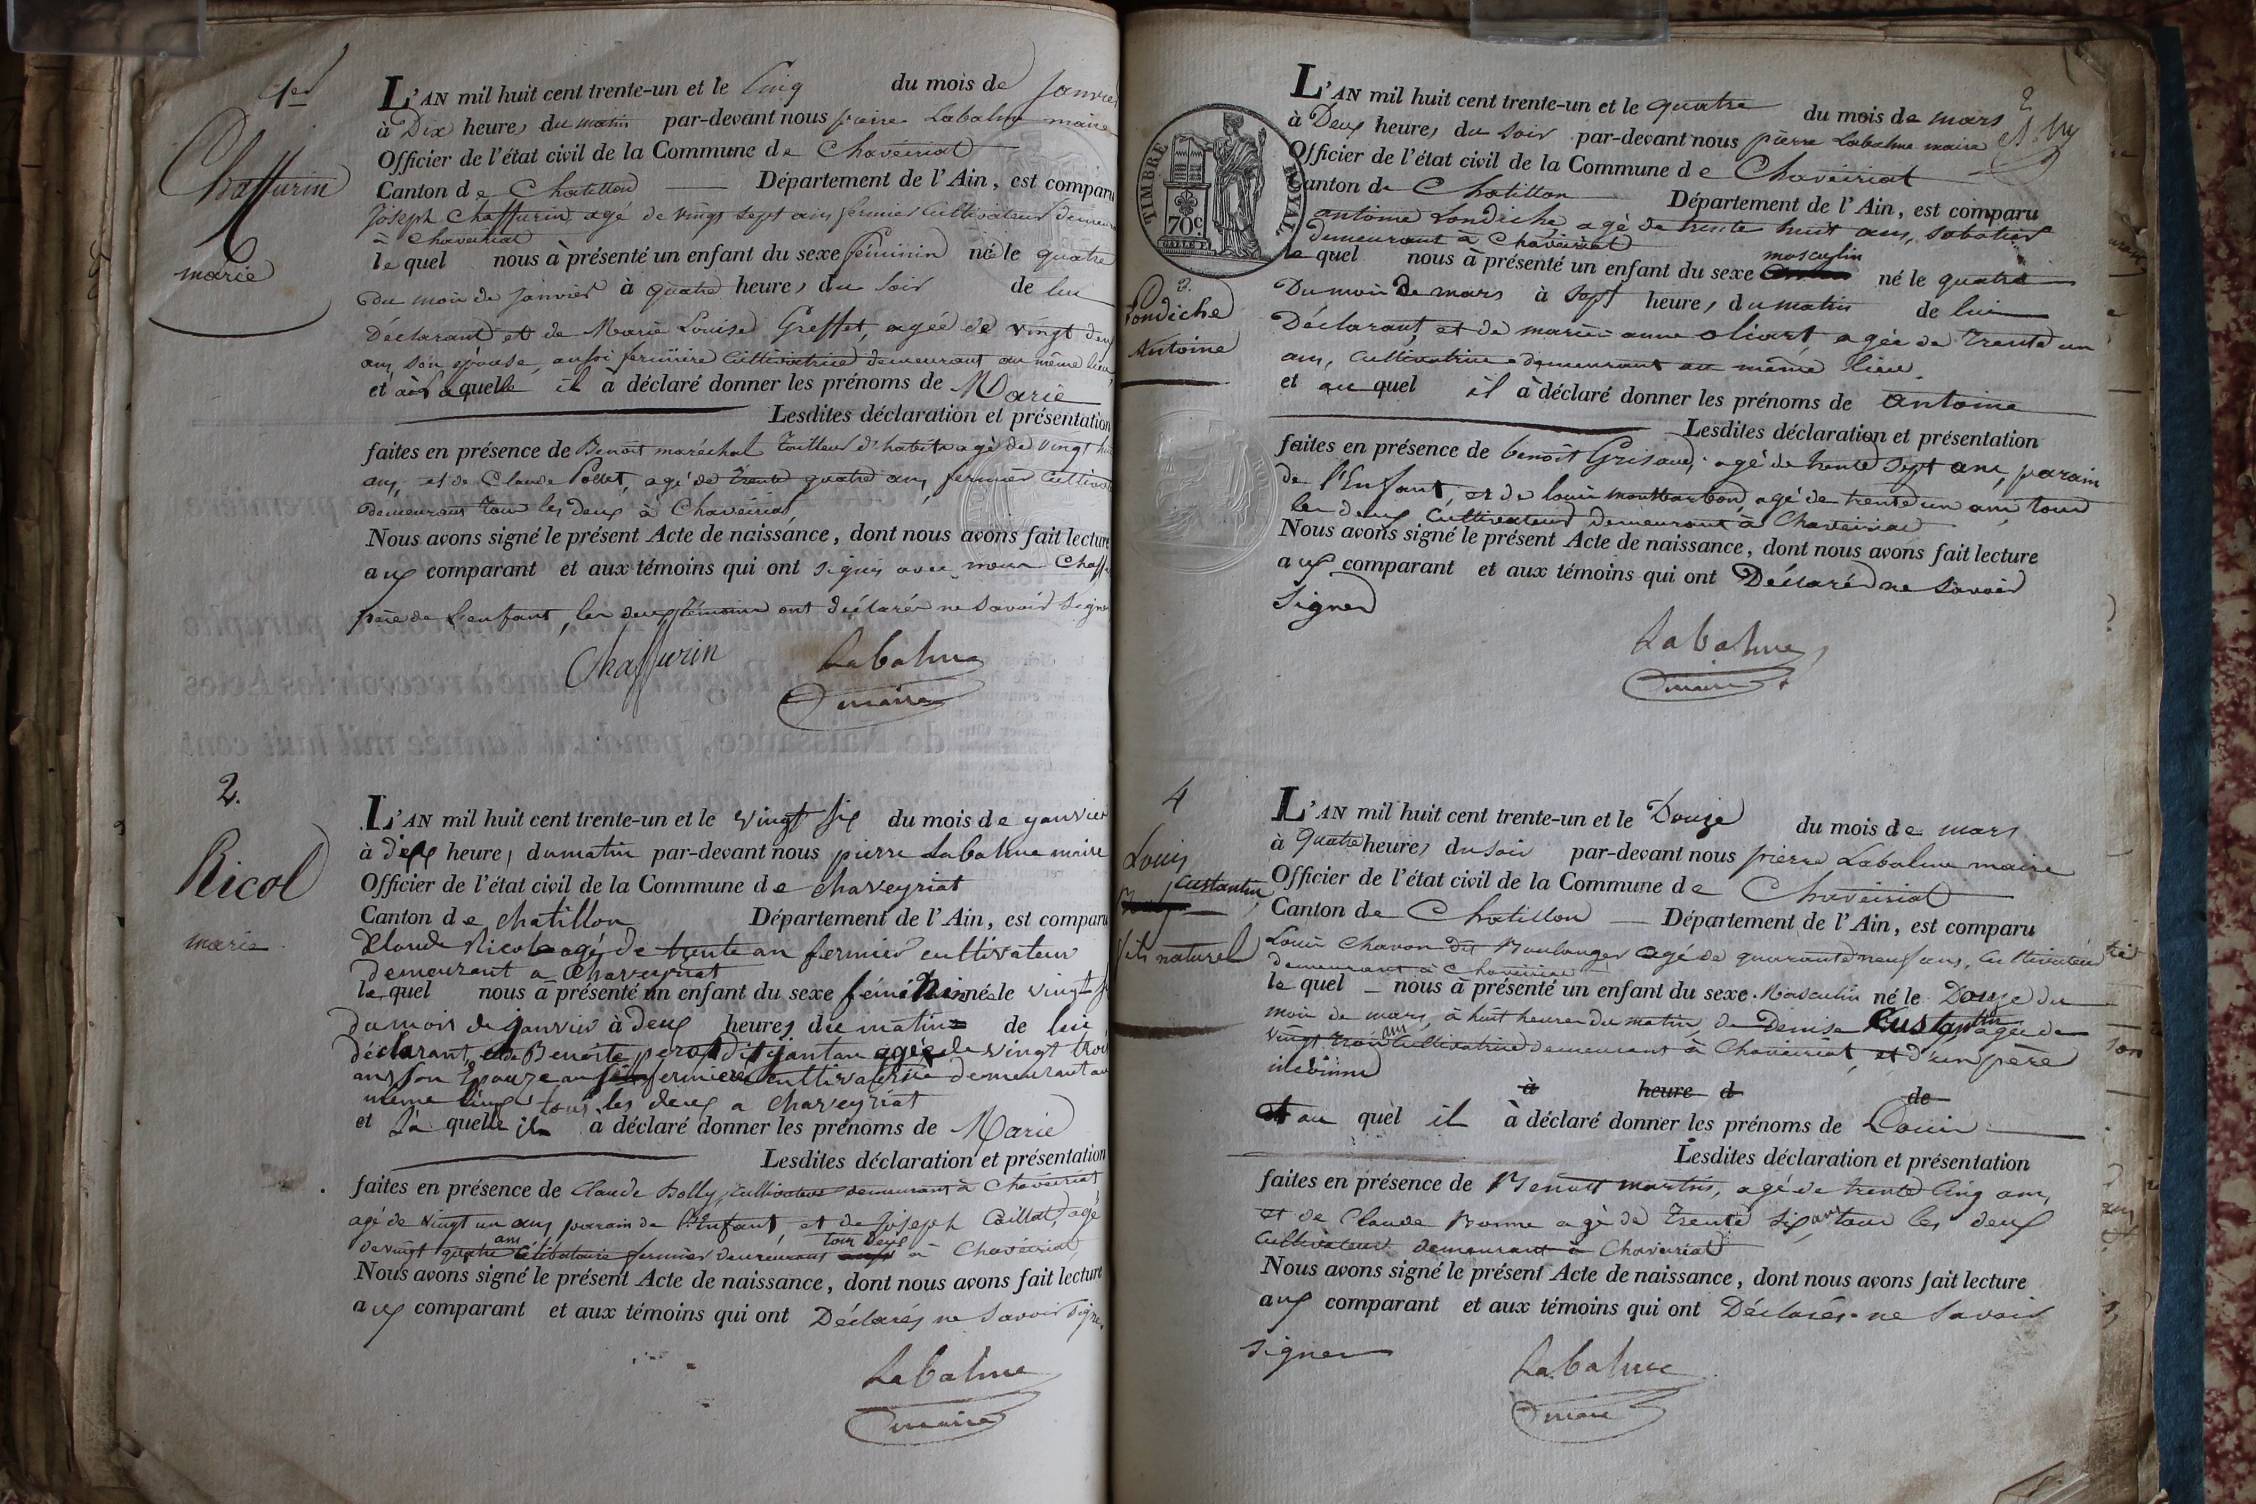 1er
Chaffurin
marie
L'AN mil huit cent trente-un et le Cinq du mois de Janvier
à Dix heures du matin par-devant nous pierre Labalme maire
Officier de l'état civil de la Commune de Chaveiriat
Canton de Chatillon Département de l'Ain, est comparu
Joseph Chaffurin agé de vingt sept ans fermier Cultivateur demeur
à Chaveiriat
lequel nous à présenté un enfant du sexe féminin né le quatre
du mois de Janvier à quatre heures du soir de lui
Déclarant et de Marie Louise Greffet, agée de vingt deux
ans, son épouse, aussi fermiere Cultivatrice demeurant au même lieu,
et à laquelle il à déclaré donner les prénoms de Marie
Lesdites déclaration et présentation
faites en présence de Benoit maréchal tailleur d'habits agé de vingt huit
ans, et de Claude Pollet, agé de trente quatre ans, fermier Cultivat
demeurant tous les deux à Chaveiriat
Nous avons signé le présent Acte de naissance, dont nous avons fait lecture
aux comparant et aux témoins qui ont signés avec nous Chaffu
père de l'enfant, les deux témoins ont déclarés ne savoir signer
Chaffurin Labalme
maire
2.
Ricol
marie
L'AN mil huit cent trente-un et le vingt six du mois de yanvier
à deux heures dumatin par-devant nous pierre Labalme maire
Officier de l'état civil de la Commune de chaveyriat
Canton de chatillon Département de l'Ain, est comparu
Claude Ricol agé de trente an fermier cultivateur
demeurant a chaveyriat
lequel nous à présenté un enfant du sexe féminin née le vingt s
du mois de janvier à deux heures du matin de lui
déclarant, et de Benoite perat dit jantan agée de vingt trois
ans son Epouze aussi fermiere cultivatrice demeurant au
meme lieux tous les deux a chaveyriat
et la quelle il à déclaré donner les prénoms de Marie
Lesdites déclaration et présentation
faites en présence de Claude Bolly, Cultivateur demeurant à Chaveiriat
agé de vingt un ans, parain de l'Enfant, et de Joseph Caillat, agé
de vingt quatre ans Célibataire fermier demeurant tous deux à Chaveiriat
Nous avons signé le présent Acte de naissance, dont nous avons fait lecture
aux comparant et aux témoins qui ont Déclarés ne savoir signer
Labalme
maire
2
TIMBRE ROYAL
70c.
3.
Londiche
Antoine
L'AN mil huit cent trente-un et le quatre du mois de mars
à Deux heures du soir par-devant nous pierre Labalme maire
Officier de l'état civil de la Commune de Chaveiriat
Canton de Chatillon Département de l'Ain, est comparu
antoine Londiche agé de trente huit ans, sabotier
demeurant à Chaveiriat
lequel nous à présenté un enfant du sexe masculin né le quatre
Du mois de mars à sept heures du matin de lui
Déclarant, et de marie anne olivart, agée de trente un
ans, Cultivatrice demeurant au même lieu.
et au quel il à déclaré donner les prénoms de Antoine
Lesdites déclaration et présentation
faites en présence de benoit Grisaud, agé de trente sept ans, parain
de l'Enfant, et de louis montbarbon, agé de trente un ans, tous
les deux Cultivateurs demeurant à Chaveiriat
Nous avons signé le présent Acte de naissance, dont nous avons fait lecture
aux comparant et aux témoins qui ont Déclarés ne savoir
signer
Labalme
maire
4
Louis
Custantin
fils naturel
L'AN mil huit cent trente-un et le Douze du mois de mars
à Quatre heures du soir par-devant nous pierre Labalme maire
Officier de l'état civil de la Commune de Chaveiriat
Canton de Chatillon Département de l'Ain, est comparu
Louis Chavon dit Boulanger agé de quarante neuf ans, Cultivateur
demeurant à Chaveiriat
lequel nous à présenté un enfant du sexe Masculin né le Douze du
mois de mars, à huit heures du matin, de Denise Custantin agée de
vingt trois ans Cultivatrice demeurant à Chaveiriat, et d'un père
inconnu
à heure d de
et au quel il à déclaré donner les prénoms de Louis
Lesdites déclaration et présentation
faites en présence de Benoit martin, agé de trente Cinq ans,
et de Claude Bonne agé de trente six ans tous les deux
Cultivateurs demeurant à Chaveiriat
Nous avons signé le présent Acte de naissance, dont nous avons fait lecture
aux comparant et aux témoins qui ont Déclarés ne savoir
signer
Labalme
maire